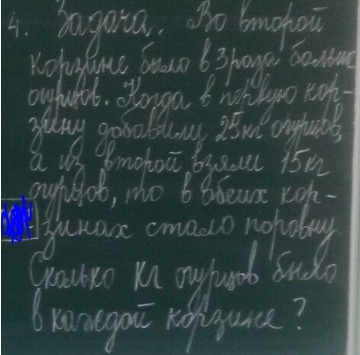 4. Задача. Во второй
корзине было в 3 раза больше
огурцов. Когда в первую кор-
зину добавили 25кг огурцов,
а из второй взяли 15кг
огурцов, то в обеих кор-
зинах стало поровну
Сколько кг огурцов было
в каждой корзине?